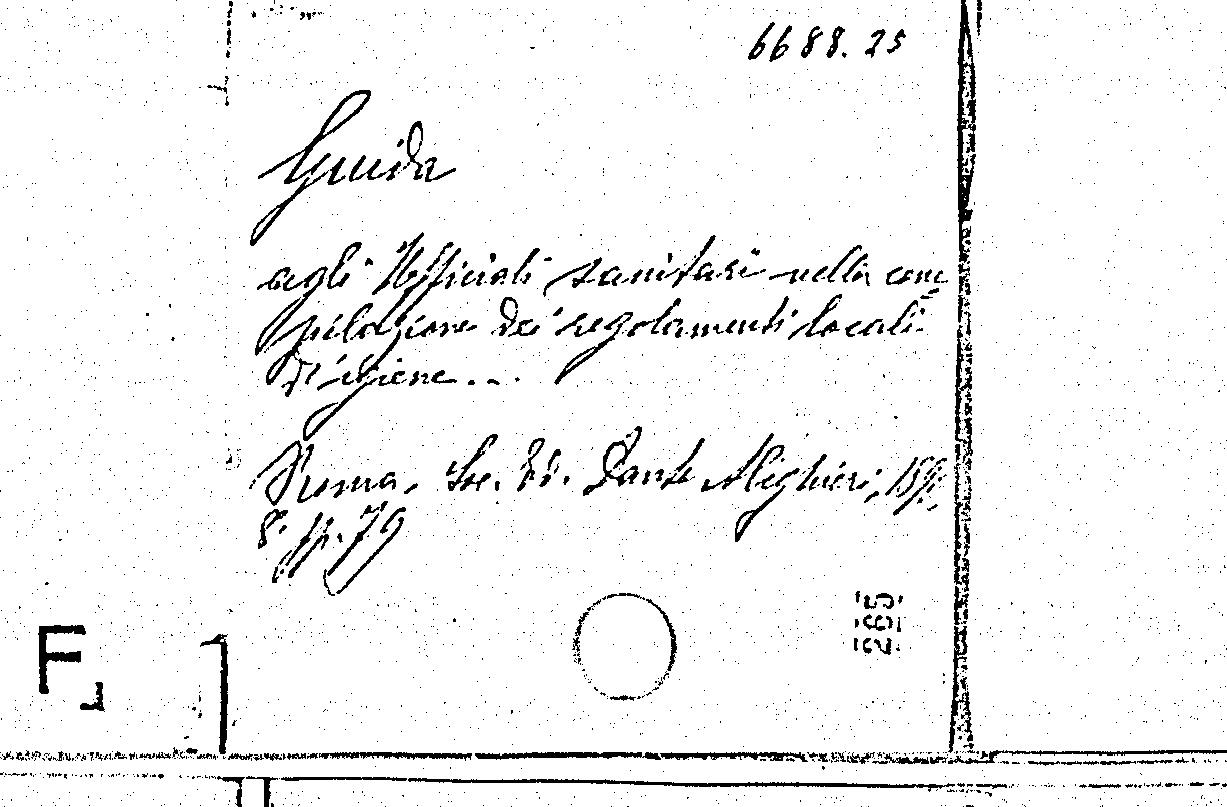 6688.25
Guida
agli Ufficiali sanitari nella com-
pilazione dei regolamenti locali
d'igiene...
Roma, Soc. Ed. Dante Alighieri,
8° pp. 79
285
F